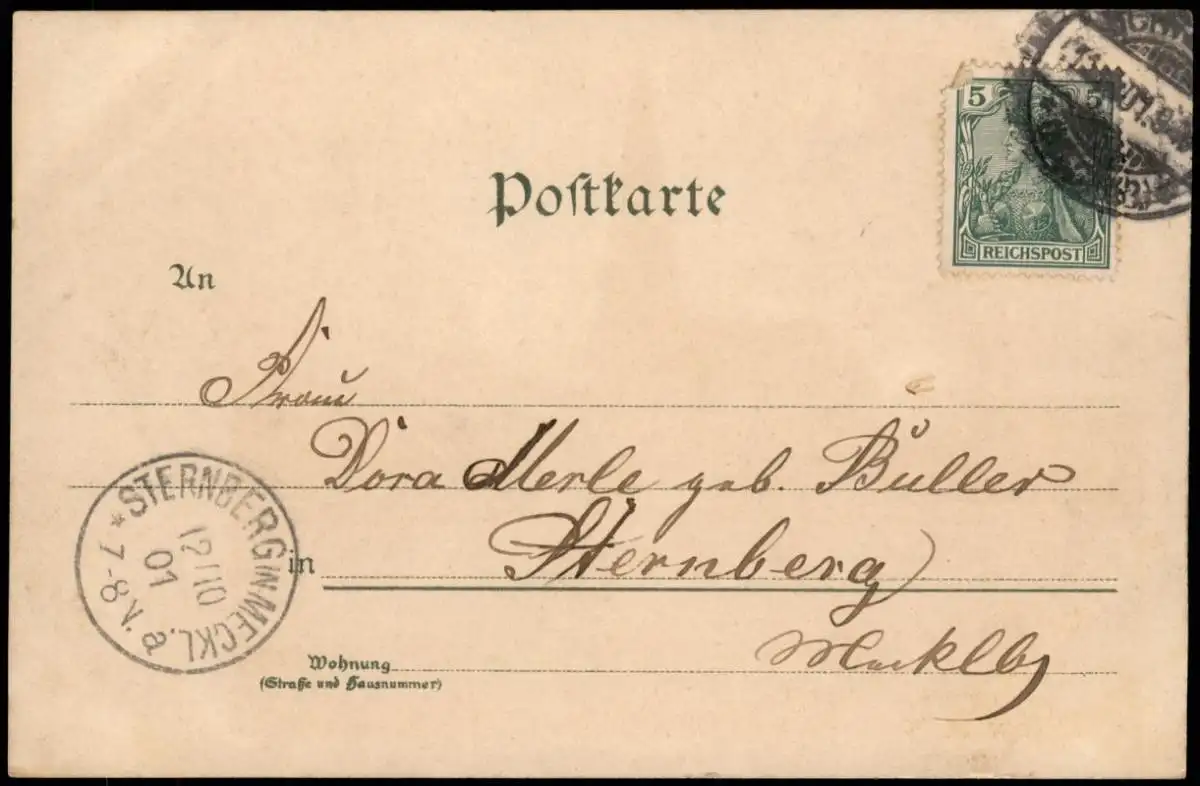 Postkarte
5 5
REICHSPOST
An
Frau
Dora Merle geb. Büller
in Sternberg
Mecklbg
Wohnung
(Straße und Hausnummer)
* STERNBERG IN MECKL. a
12/10
01
7-8 N.